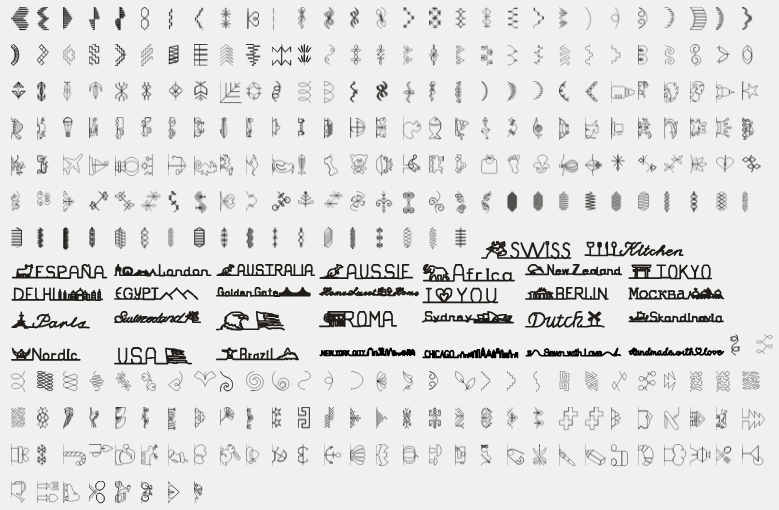 SWISS Kitchen
ESPAÑA London AUSTRALIA AUSSIE Africa New Zealand TOKYO
DELHI EGYPT Golden Gate Home Sweet Home I YOU BERLIN МОСКВА
Paris Switzerland ROMA Sydney Dutch Skandinavia
Nordic USA Brazil NEW YORK CITY CHICAGO Sewn with Love Handmade with love